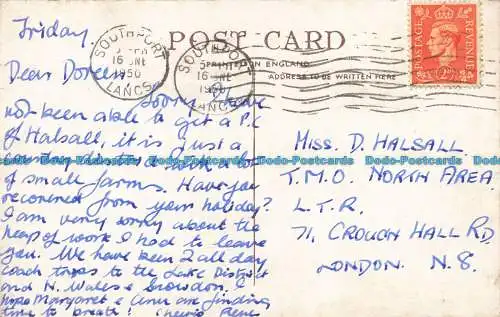 Friday
POST CARD
PRINTED IN ENGLAND
ADDRESS TO BE WRITTEN HERE
SOUTHPORT
16 JNE
1950
LANCS
SOUTHPORT
16 JNE
1950
LANCS
POSTAGE
REVENUE
Dear Doreen,
Sorry I have
not been able to get a P.C
of Halsall, it is just a
country district with a lot
of small farms. Have you
recovered from your holiday?
I am very sorry about the
heap of work I had to leave
you. We have been 2 all day
coach trips to the Lake District
and N. Wales & Snowdon. I
hope Margaret & Ann are finding
time to breath! Cheerio Rene
MISS. D. HALSALL
T.M.O. NORTH AREA
L.T.R.
71, CROUCH HALL RD
LONDON. N.8.
Dodo-Postcards.com